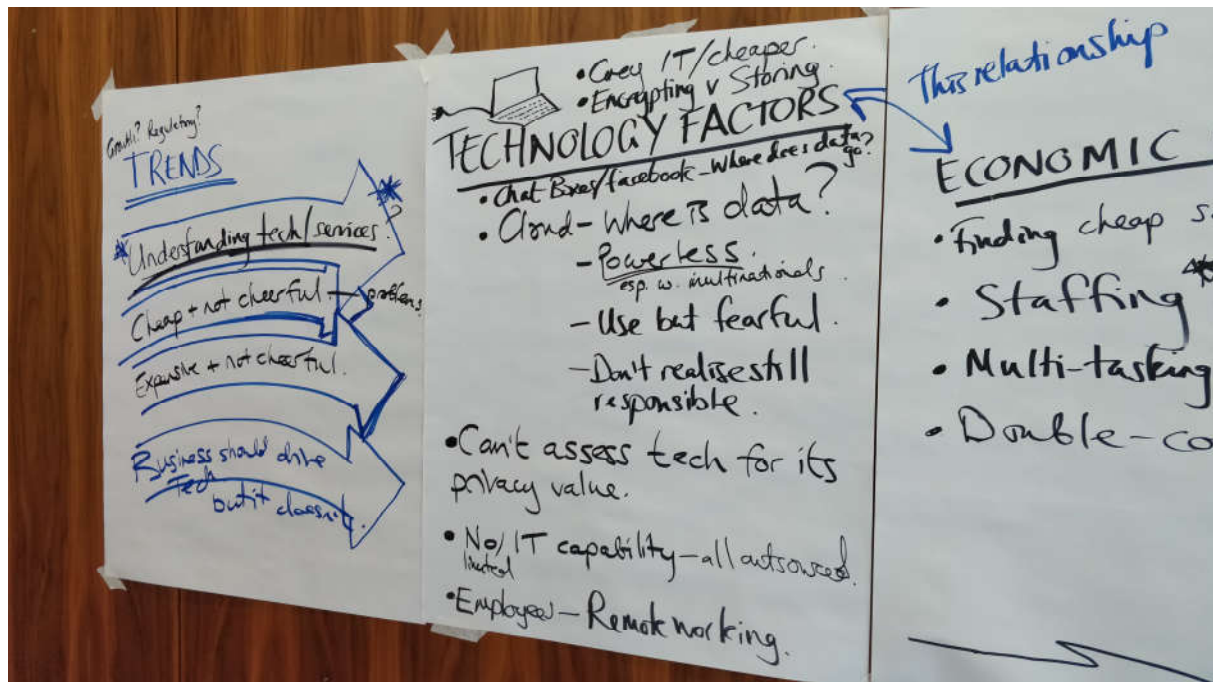 Growth? Regulatory?
TRENDS
Understanding tech/services?
Cheap + not cheerful — problems
Expensive + not cheerful.
Business should drive
Tech
but it doesn't.
• Grey IT/cheaper.
• Encrypting v Storing.
TECHNOLOGY FACTORS
• Chat Boxes/facebook - Where does data go?
• Cloud - Where is data?
- Powerless.
esp. w. multinationals.
- Use but fearful.
- Don't realise still
responsible.
• Can't assess tech for its
privacy value.
• No/limited IT capability - all outsourced.
• Employees - Remote working.
This relationship
ECONOMIC
• Finding cheap
• Staffing
• Multi-tasking
• Double-co